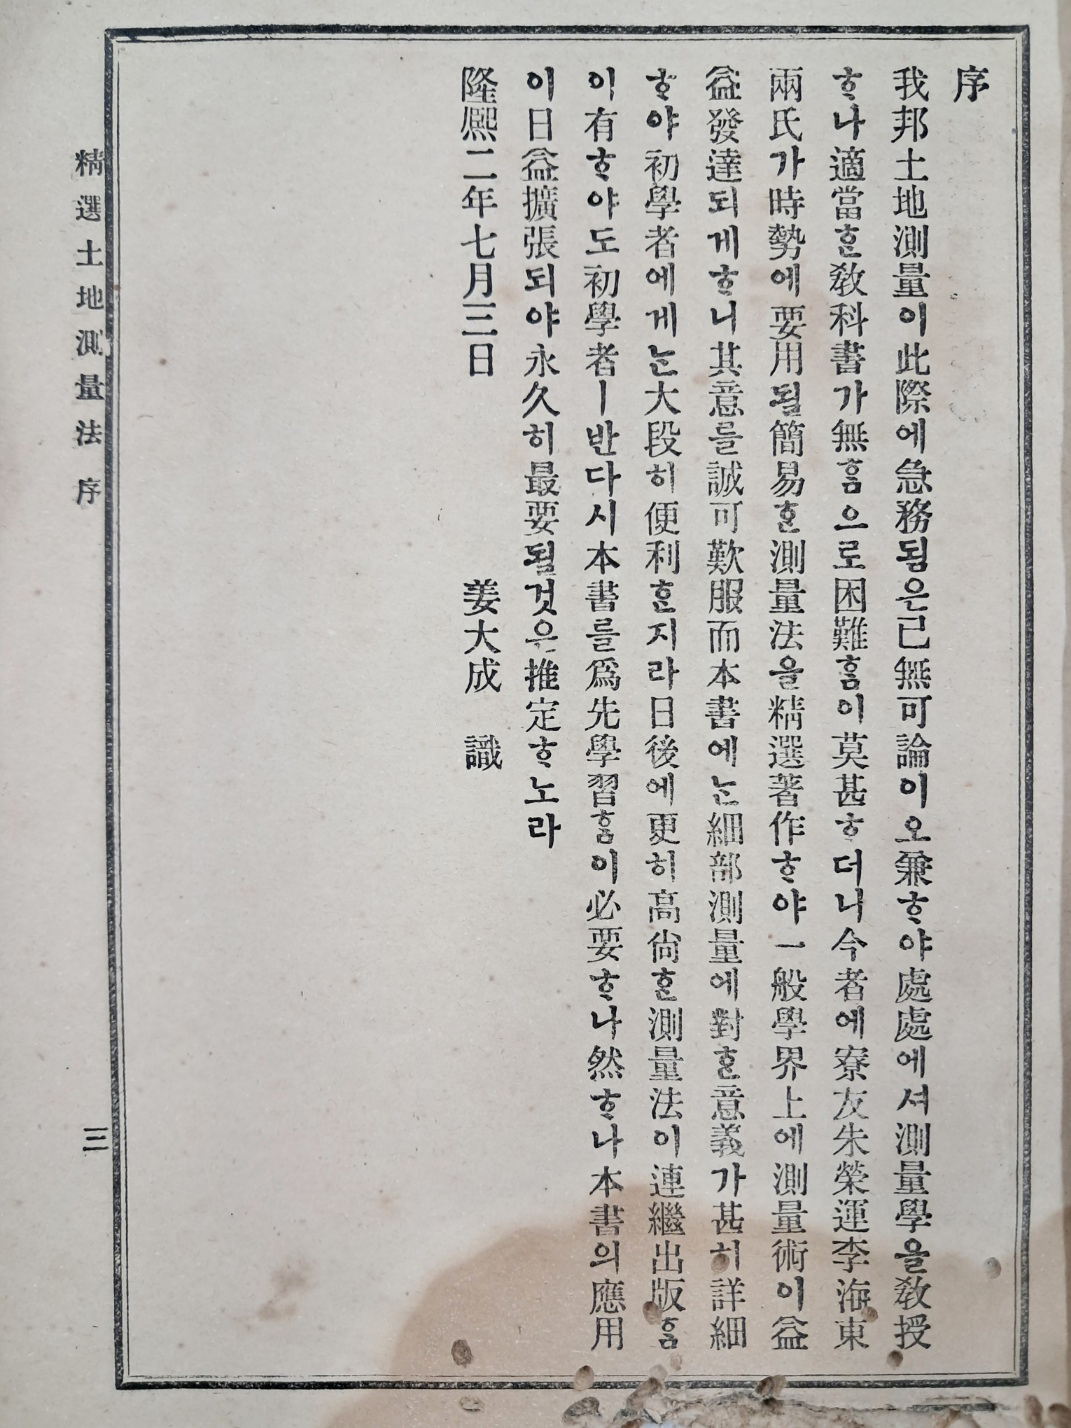 序
我邦土地測量이此際에急務됨은已無可論이오兼ᄒᆞ야處處에셔測量學을敎授
ᄒᆞ나適當ᄒᆞᆫ敎科書가無ᄒᆞᆷ으로困難ᄒᆞᆷ이莫甚ᄒᆞ더니今者에寮友朱榮運李海東
兩氏가時勢에要用될簡易ᄒᆞᆫ測量法을精選著作ᄒᆞ야一般學界上에測量術이益
益發達되게ᄒᆞ니其意를誠可歎服而本書에ᄂᆞᆫ細部測量에對ᄒᆞᆫ意義가甚히詳細
ᄒᆞ야初學者에게ᄂᆞᆫ大段히便利ᄒᆞᆫ지라日後에更히高尙ᄒᆞᆫ測量法이連繼出版ᄒᆞᆷ
이有ᄒᆞ야도初學者ㅣ반다시本書를爲先學習ᄒᆞᆷ이必要ᄒᆞ나然ᄒᆞ나本書의應用
이日益擴張되야永久히最要될것은推定ᄒᆞ노라
隆熙二年七月三日 姜大成 識
精選土地測量法 序
三